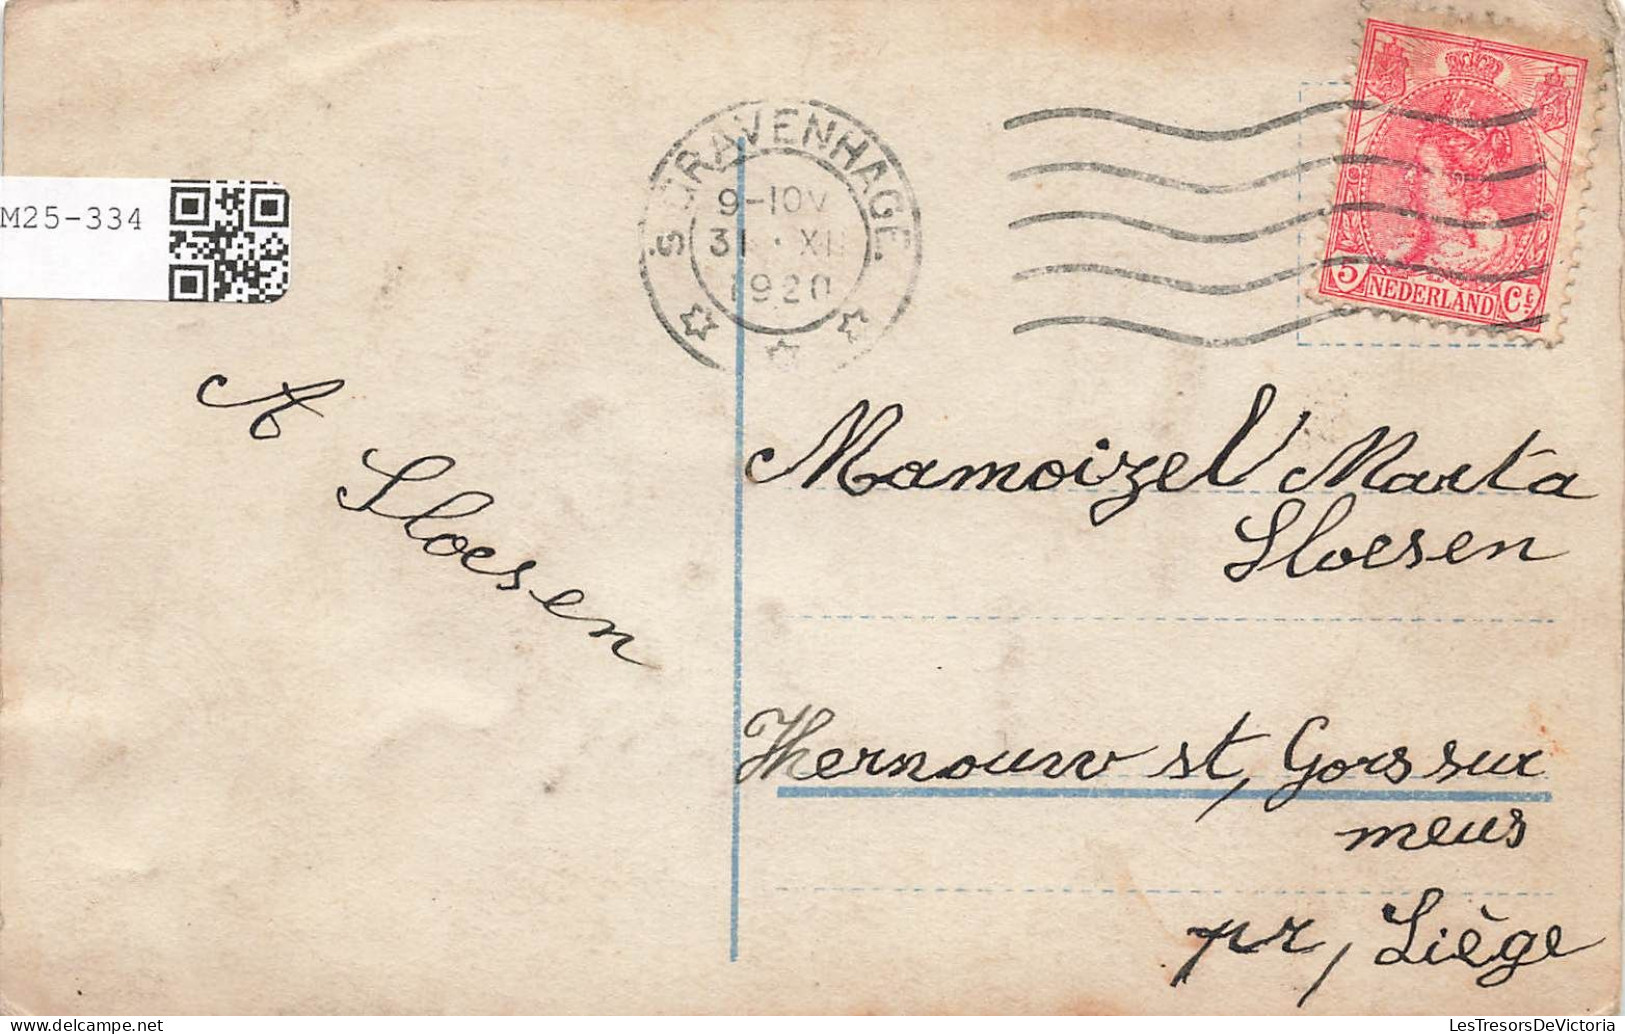 M25-334
'S GRAVENHAGE.
9-10V
31·XII
1920
5 NEDERLAND Ct
A
Sloesen
Mamoizel Marta
Sloesen
st, Gors sur
meus
pr, Liège
LesTresorsDeVictoria